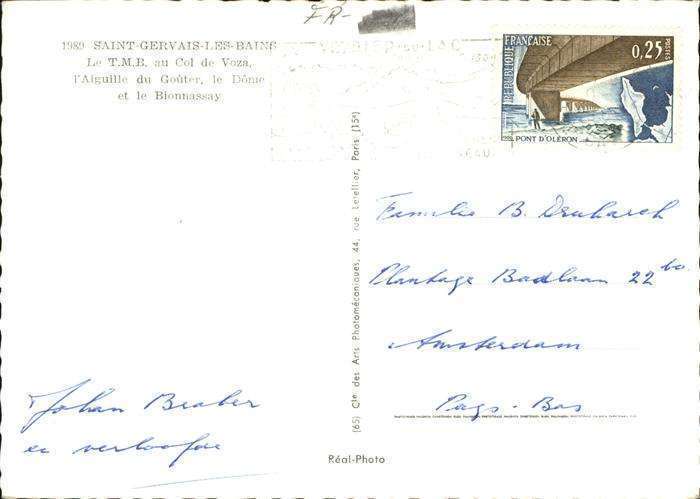 FR-
1989 SAINT-GERVAIS-LES-BAINS
Le T.M.B. au Col de Voza,
l'Aiguille du Goûter, le Dôme
et le Bionnassay
REPUBLIQUE FRANÇAISE
0,25
POSTES
PONT D'OLÉRON
(65) Cie des Arts Photomécaniques, 44, rue Letellier, Paris (15e)
Familie B.
Plantage Badlaan 22
Amsterdam
Pays-Bas
Johan Braber
en verloofde
Réal-Photo